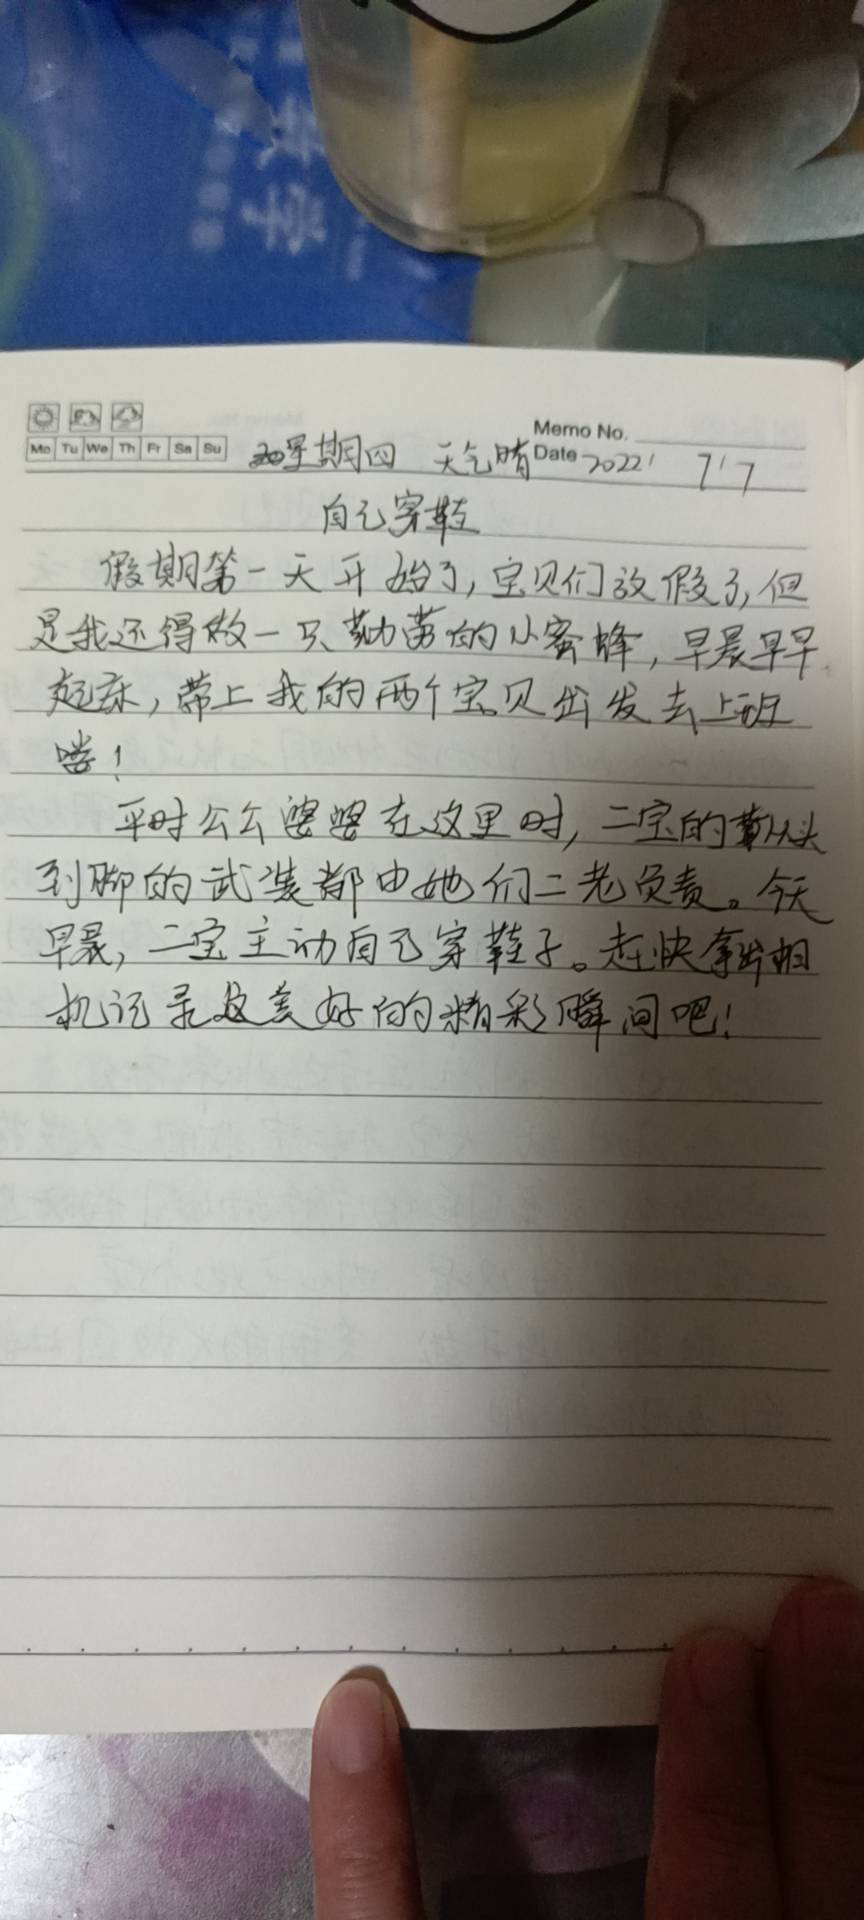 Memo No.
Mo Tu We Th Fr Sa Su
星期四 天气晴 Date 2022' 7' 7
自己穿鞋
假期第一天开始了,宝贝们放假了,但
是我还得做一只勤劳的小蜜蜂,早晨早早
起床,带上我的两个宝贝出发去上班
喽!
平时公公婆婆在这里时,二宝的从头
到脚的武装都由她们二老负责。今天
早晨,二宝主动自己穿鞋子。赶快拿出相
机记录这美好的精彩瞬间吧!